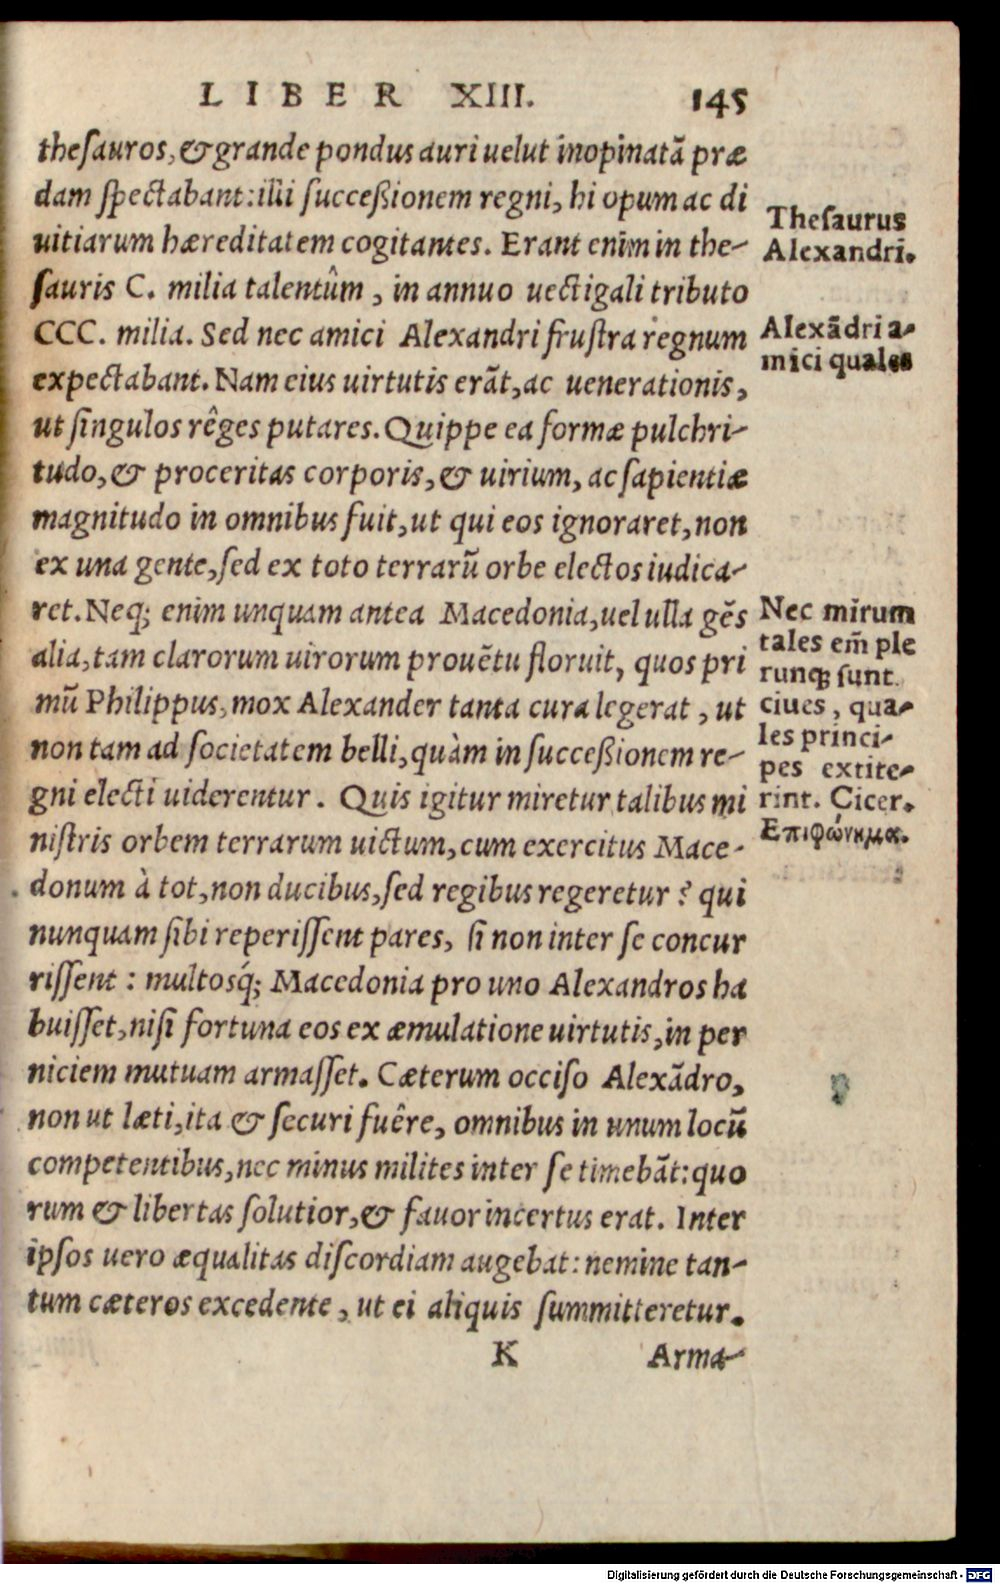 LIBER XIII. 145
theſauros, & grande pondus auri uelut inopinatã præ
dam ſpectabant: illi ſucceßionem regni, hi opum ac di
uitiarum hæreditatem cogitantes. Erant enim in the-
ſauris C. milia talentûm, in annuo uectigali tributo
CCC. milia. Sed nec amici Alexandri fruſtra regnum
expectabant. Nam eius uirtutis erãt, ac uenerationis,
ut ſingulos rêges putares. Quippe ea formæ pulchri-
tudo, & proceritas corporis, & uirium, ac ſapientiæ
magnitudo in omnibus fuit, ut qui eos ignoraret, non
ex una gente, ſed ex toto terrarũ orbe electos iudica-
ret. Neq; enim unquam antea Macedonia, uel ulla gẽs
alia, tam clarorum uirorum prouẽtu floruit, quos pri
mũ Philippus, mox Alexander tanta cura legerat, ut
non tam ad ſocietatem belli, quàm in ſucceßionem re-
gni electi uiderentur. Quis igitur miretur talibus mi
niſtris orbem terrarum uictum, cum exercitus Mace-
donum à tot, non ducibus, ſed regibus regeretur? qui
nunquam ſibi reperiſſent pares, ſi non inter ſe concur
riſſent: multosq́; Macedonia pro uno Alexandros ha
buiſſet, niſi fortuna eos ex æmulatione uirtutis, in per
niciem mutuam armaſſet. Cæterum occiſo Alexãdro,
non ut læti, ita & ſecuri fuêre, omnibus in unum locũ
competentibus, nec minus milites inter ſe timebãt: quo
rum & libertas ſolutior, & fauor incertus erat. Inter
ipſos uero æqualitas diſcordiam augebat: nemine tan-
tum cæteros excedente, ut ei aliquis ſummitteretur.
K Arma-
Theſaurus
Alexandri.
Alexãdri a-
mici quales
Nec mirum
tales em̃ ple
runq; ſunt
ciues, qua-
les princi-
pes extite-
rint. Cicer.
Επιφώνημα.
Digitalisierung gefördert durch die Deutsche Forschungsgemeinschaft - DFG